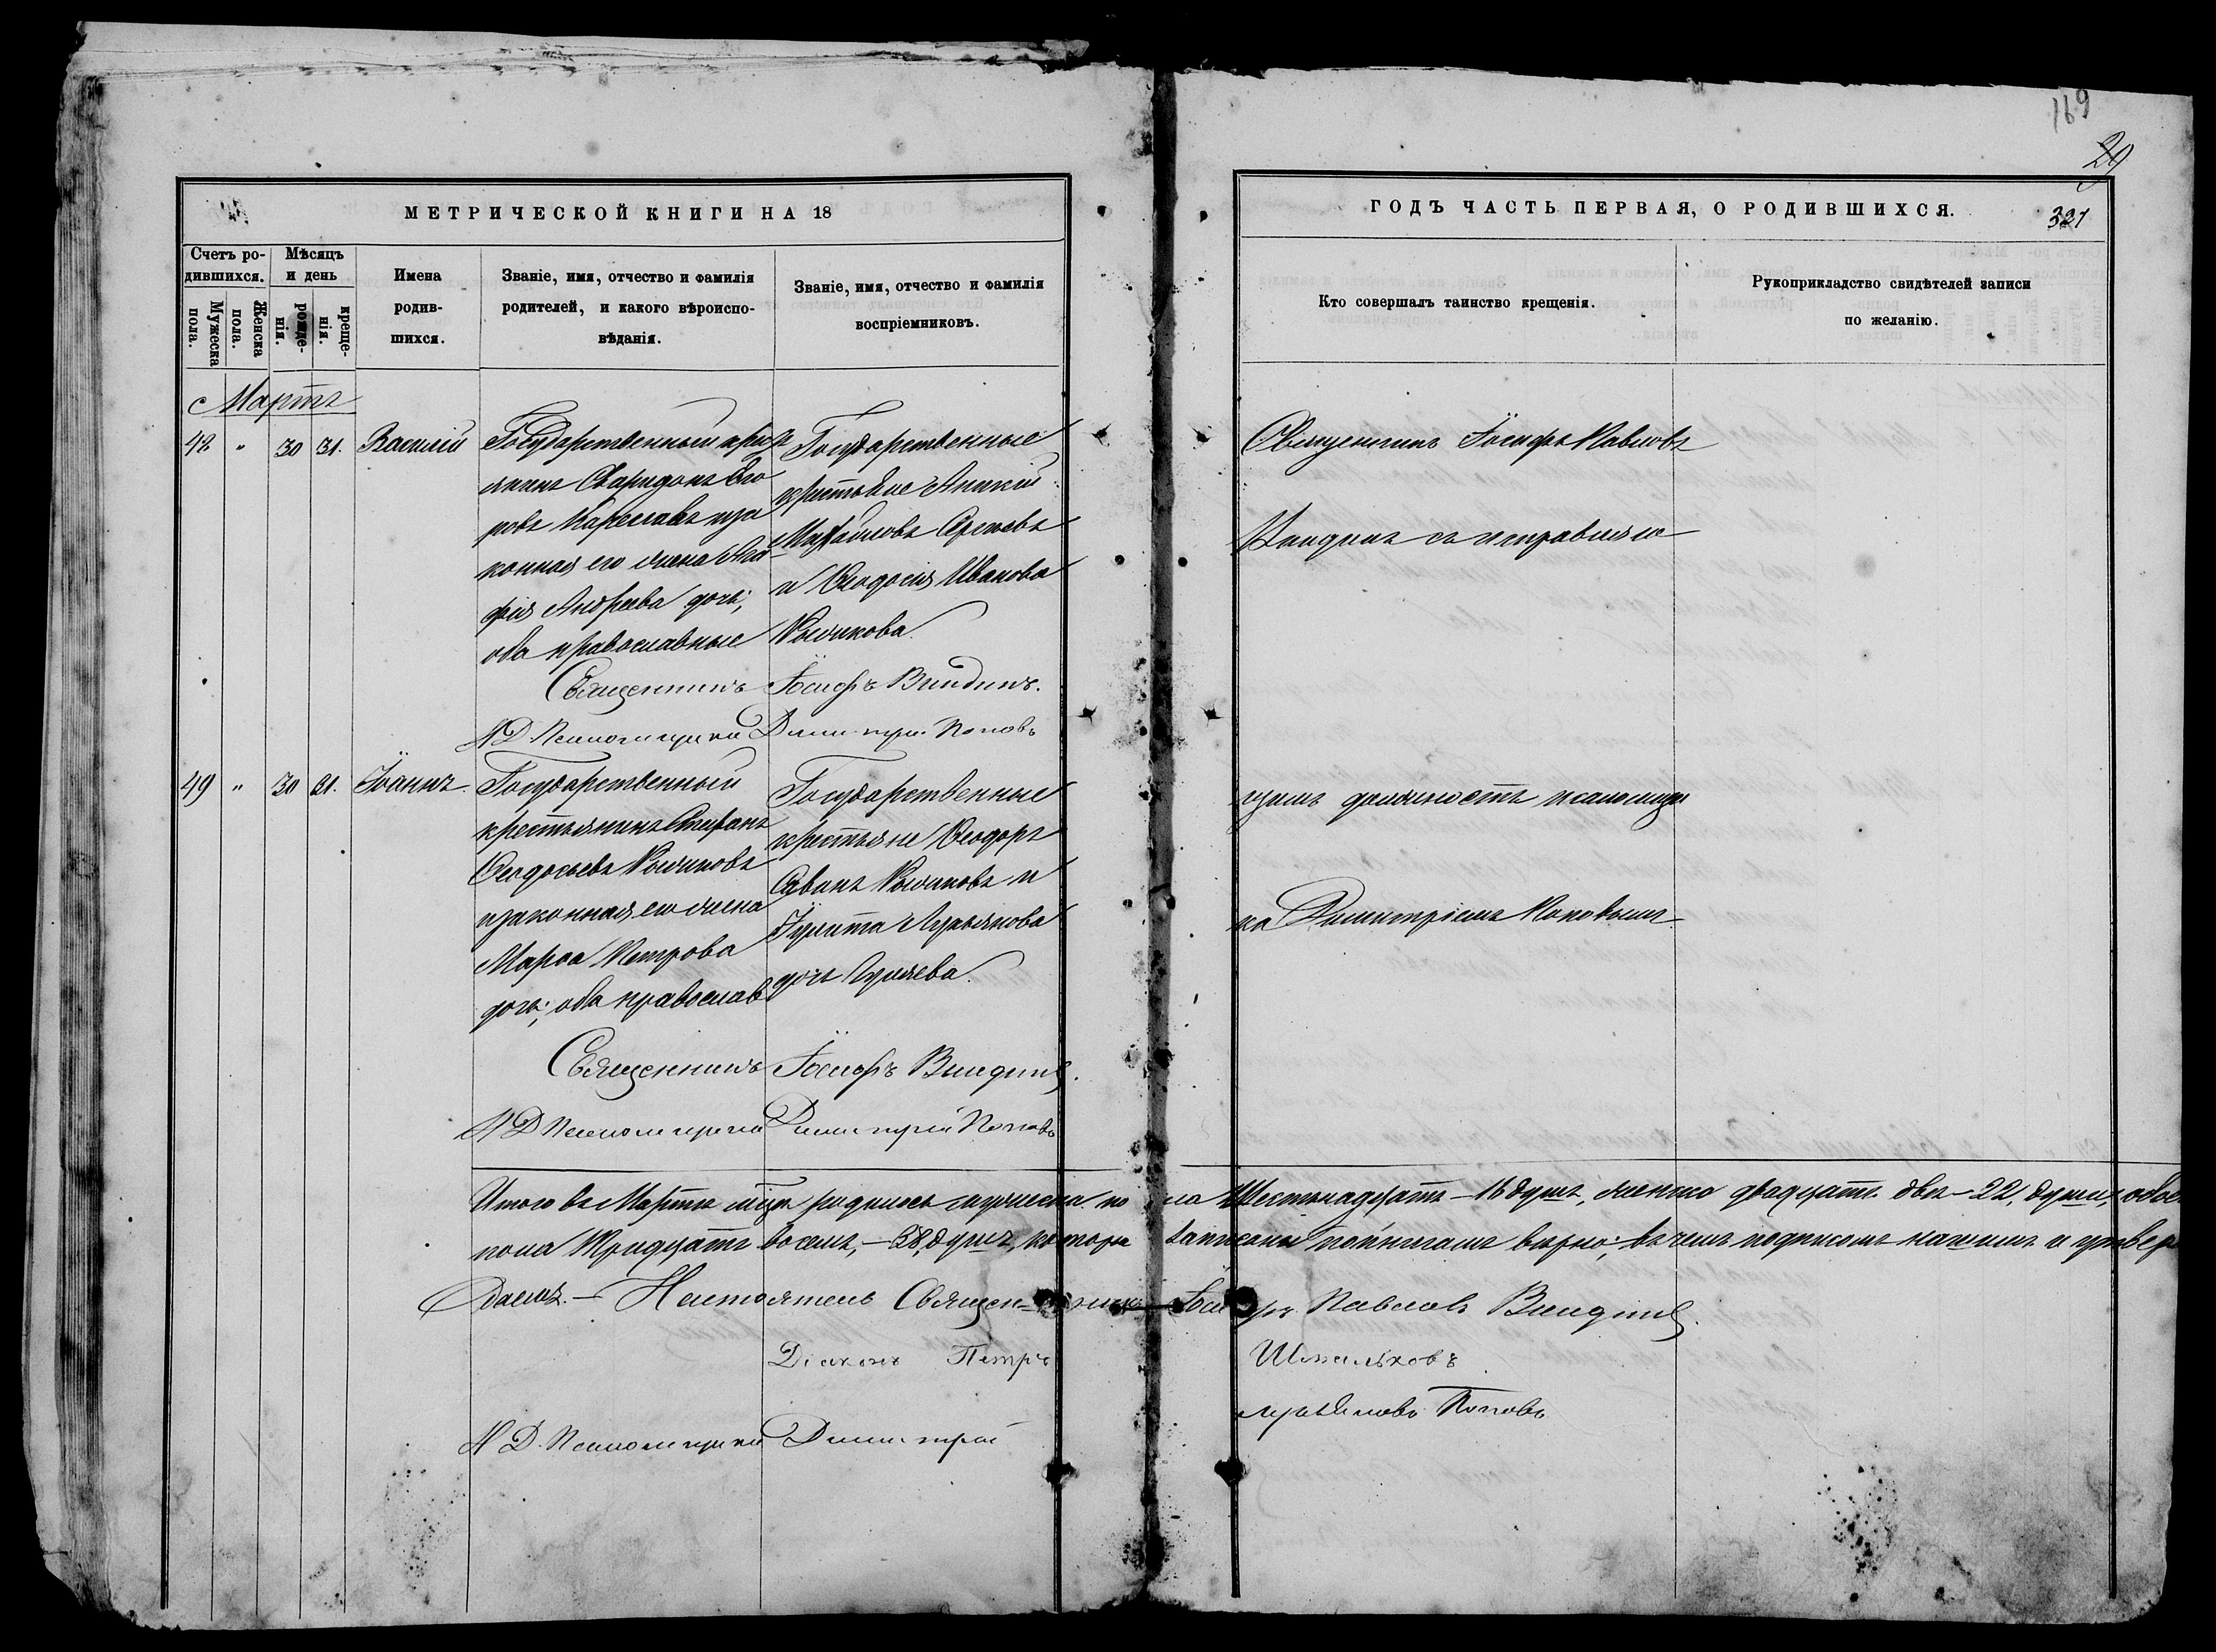 169
29
МЕТРИЧЕСКОЙ КНИГИ НА 18
ГОДЪ ЧАСТЬ ПЕРВАЯ, О РОДИВШИХСЯ.
321
Счетъ ро-
дившихся.
Мужеска
пола.
Женска
пола.
Мѣсяцъ
и день
рожде-
нія.
креще-
нія.
Имена
родив-
шихся.
Званіе, имя, отчество и фамилія
родителей, и какого вѣроиспо-
вѣданія.
Званіе, имя, отчество и фамилія
воспріемниковъ.
Кто совершалъ таинство крещенія.
Рукоприкладство свидѣтелей записи
по желанію.
Мартъ
48 " 30 31. Василій
Государственный крест
янинъ Спиридонъ Его
ровъ и за
конная его жена
Андреева дочь;
оба православные
Государственные
крестьяне Аникій
Михайловъ Сергѣевъ
и Ѳеодосія Иванова
Рыжкова.
Священникъ Іосифъ Павловъ
Виндинъ съ исправляю
Священникъ Іосифъ Виндинъ.
И Д Псаломщика Димитрій Поповъ
49 " 30 31. Іоаннъ.
Государственный
крестьянинъ Стефанъ
Ѳеодосьевъ Рыжковъ
и законная его жена
Марѳа Петрова
дочь; оба православ
Государственные
крестьяне Ѳеодоръ
Савинъ Рыжковъ и
Іулитта Лукьянова
дочь Гуляева.
щимъ должность псаломщи
ка Димитріемъ Поповымъ.
Священникъ Іосифъ Виндинъ.
И Д Псаломщика Димитрій Поповъ
Итого въ Мартѣ мцѣ родилось мужеска по ла Шестнадцать - 16 душъ, женска двадцать двѣ - 22, души, обоего
пола Тридцать восемь, - 38, душъ, которы записаны по книгамъ вѣрно; въ чемъ подписомъ нашимъ и утвер
ждаемъ. - Настоятель Священникъ Іосифъ Павловъ Виндинъ.
Діаконъ Петръ Шмальковъ
И Д. Псаломщика Димитрій Лукиновъ Поповъ